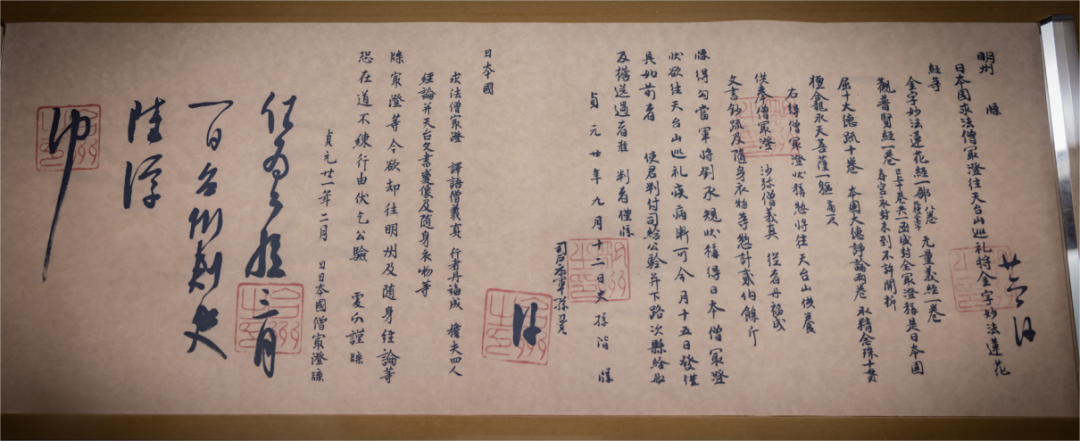 明州 牒
日本国求法僧最澄往天台山巡礼将金字妙法蓮花
経等
金字妙法蓮花経一部 无量義経一巻
観普賢経一巻 已上十巻共一函盛封全最澄称是日本国
春宮永封未到不許開拆
屈十大徳疏十巻 本国大徳諍論両巻 水精念珠十貫
檀龕水天菩薩一躯 高一尺
右得僧最澄状称惣将往天台山供養
供奉僧最澄 沙弥僧義真 従者丹福成
文書鈔疏及随身衣物等惣計貳伯餘斤
牒得勾當軍将劉承規状称得日本僧最澄
状欲往天台山巡礼疾病漸可今月十五日發謹
具如前者 使君判付司給公験并下路次縣給舡
及擔送過者准 判者謹牒
貞元廿年九月十二日史孫階 牒
司戸参軍孫
日本國
求法僧最澄 譯語僧義真 行者丹福成 擔夫四人
經論并天台文書變像及随身衣物等
牒最澄等今欲却往明州及随身經論等
恐在道不練行由伏乞公験 處分謹牒
貞元廿一年二月 日日本國僧最澄牒
任為公験三月
一日台州刺史
陸淳
印